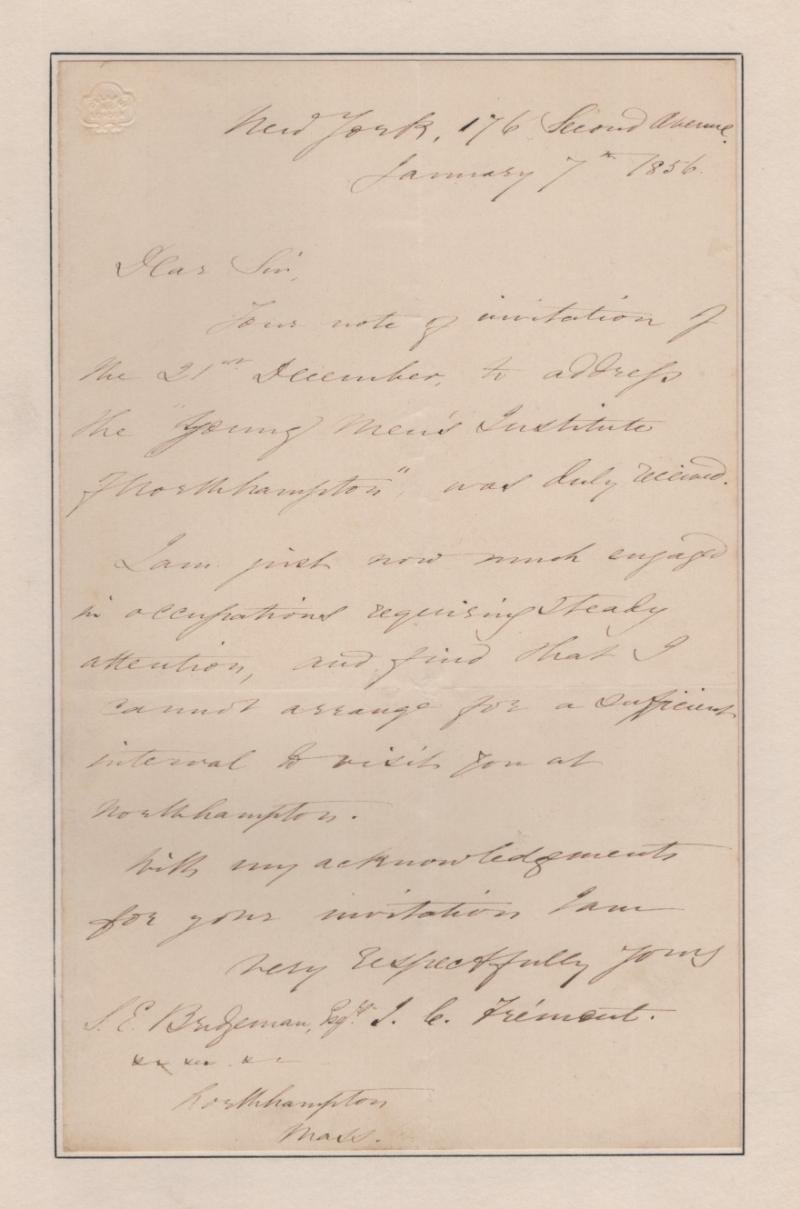 New York, 176 Second Avenue.
January 7th 1856.
Dear Sir,
Your note of invitation of
the 21st December, to address
the "Young Men's Institute
of Northhampton", was duly received.
I am just now much engaged
in occupations requiring steady
attention, and find that I
cannot arrange for a sufficient
interval to visit you at
Northhampton.
With my acknowledgments
for your invitation I am
very respectfully yours
S. E. Bridgeman, Esqr. J. C. Frémont.
Northhampton
Mass.